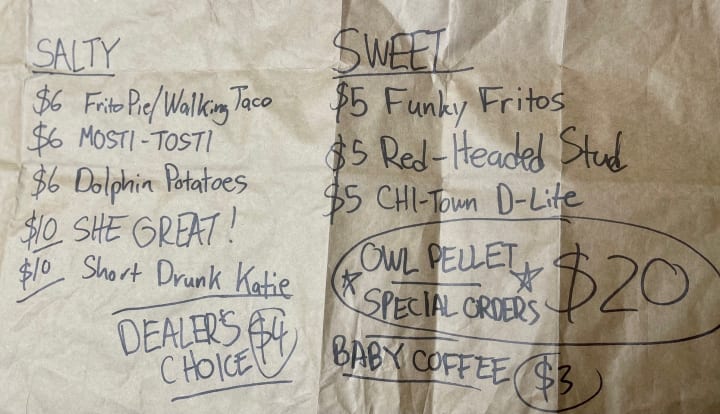 SALTY
$6 Frito Pie/Walking Taco
$6 MOSTI-TOSTI
$6 Dolphin Potatoes
$10 SHE GREAT!
$10 Short Drunk Katie
DEALER'S $4
CHOICE
SWEET
$5 Funky Fritos
$5 Red-Headed Stud
$5 CHI-Town D-Lite
OWL PELLET
SPECIAL ORDERS $20
BABY COFFEE $3